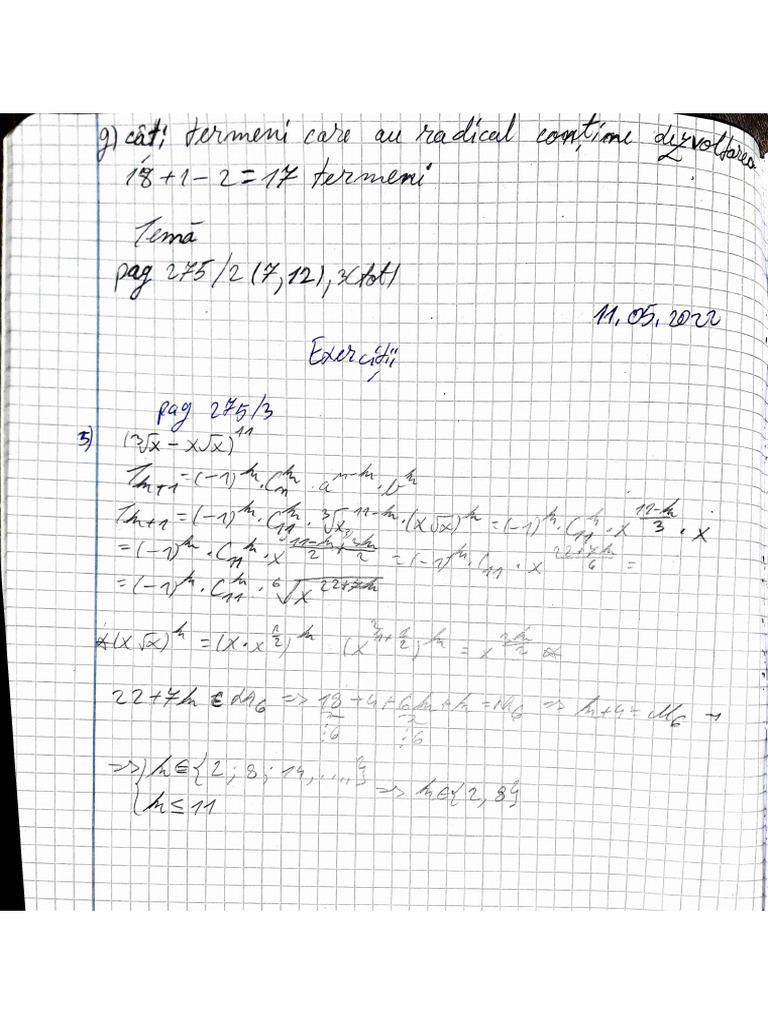 g) câți termeni care au radical conține dezvoltarea
18+1-2=17 termeni
Temă
pag 275/2 (7,12), 3(tot)
11.05.2022
Exerciții
pag 275/3
3) (∛x - x√x)^11
T_{k+1} = (-1)^k · C_n^k · a^{n-k} · b^k
T_{k+1} = (-1)^k · C_11^k · ∛x^{11-k} · (x√x)^k = (-1)^k · C_11^k · x^{(11-k)/3} · x
= (-1)^k · C_11^k · x^{(11-k)/2 + 3k/2} = (-1)^k · C_11 · x^{(22+7k)/6} =
= (-1)^k · C_11^k · ⁶√(x^{22+7k})
(x√x)^k = (x · x^{1/2})^k (x^{1+1/2})^k = x^{3k/2}
22+7k ∈ M_6 => 18+4+6k+k = M_6 => k+4 = M_6
⋮6 ⋮6
=> { k ∈ {2; 8; 14, ....}
{ k ≤ 11 => k ∈ {2, 8}